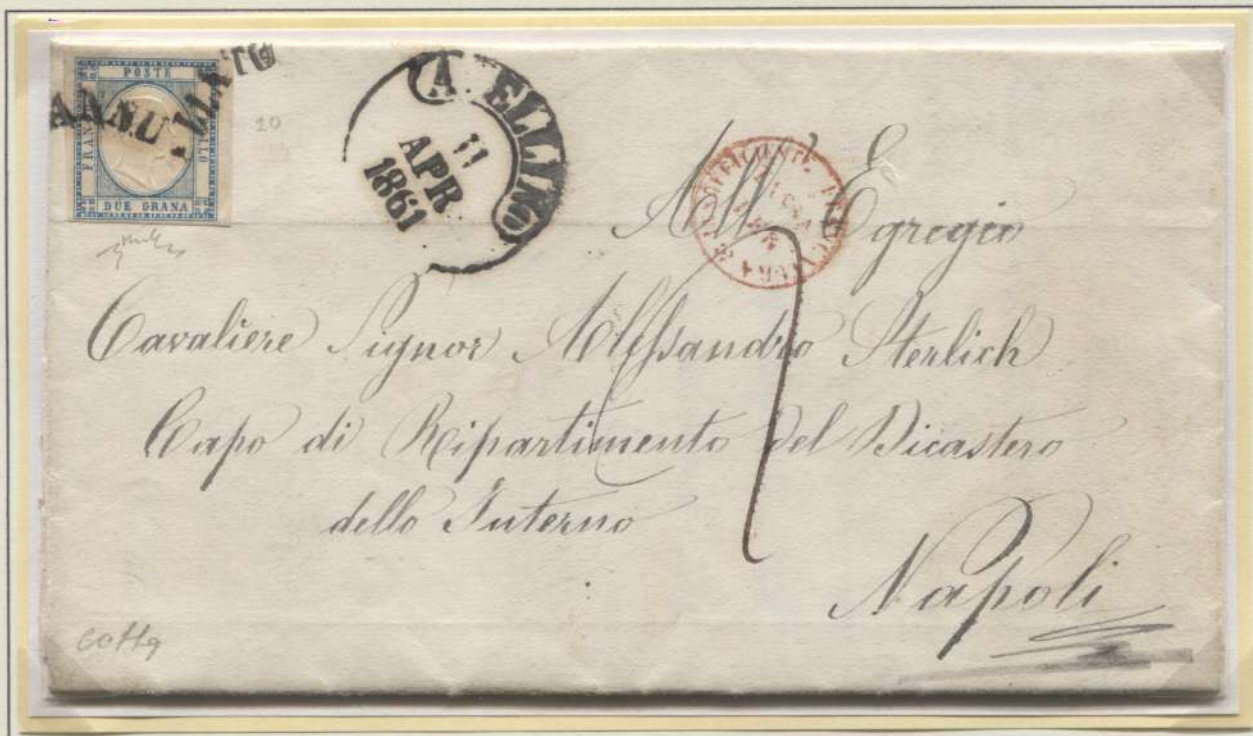 POSTE
FRANCO BOLLO
DUE GRANA
ANNULLATO
20
A. ELLINO
11
APR
1861
All' Egregio
Cavaliere Signor Alessandro Sterlich
Capo di Ripartimento del Dicastero
dello Interno
Napoli